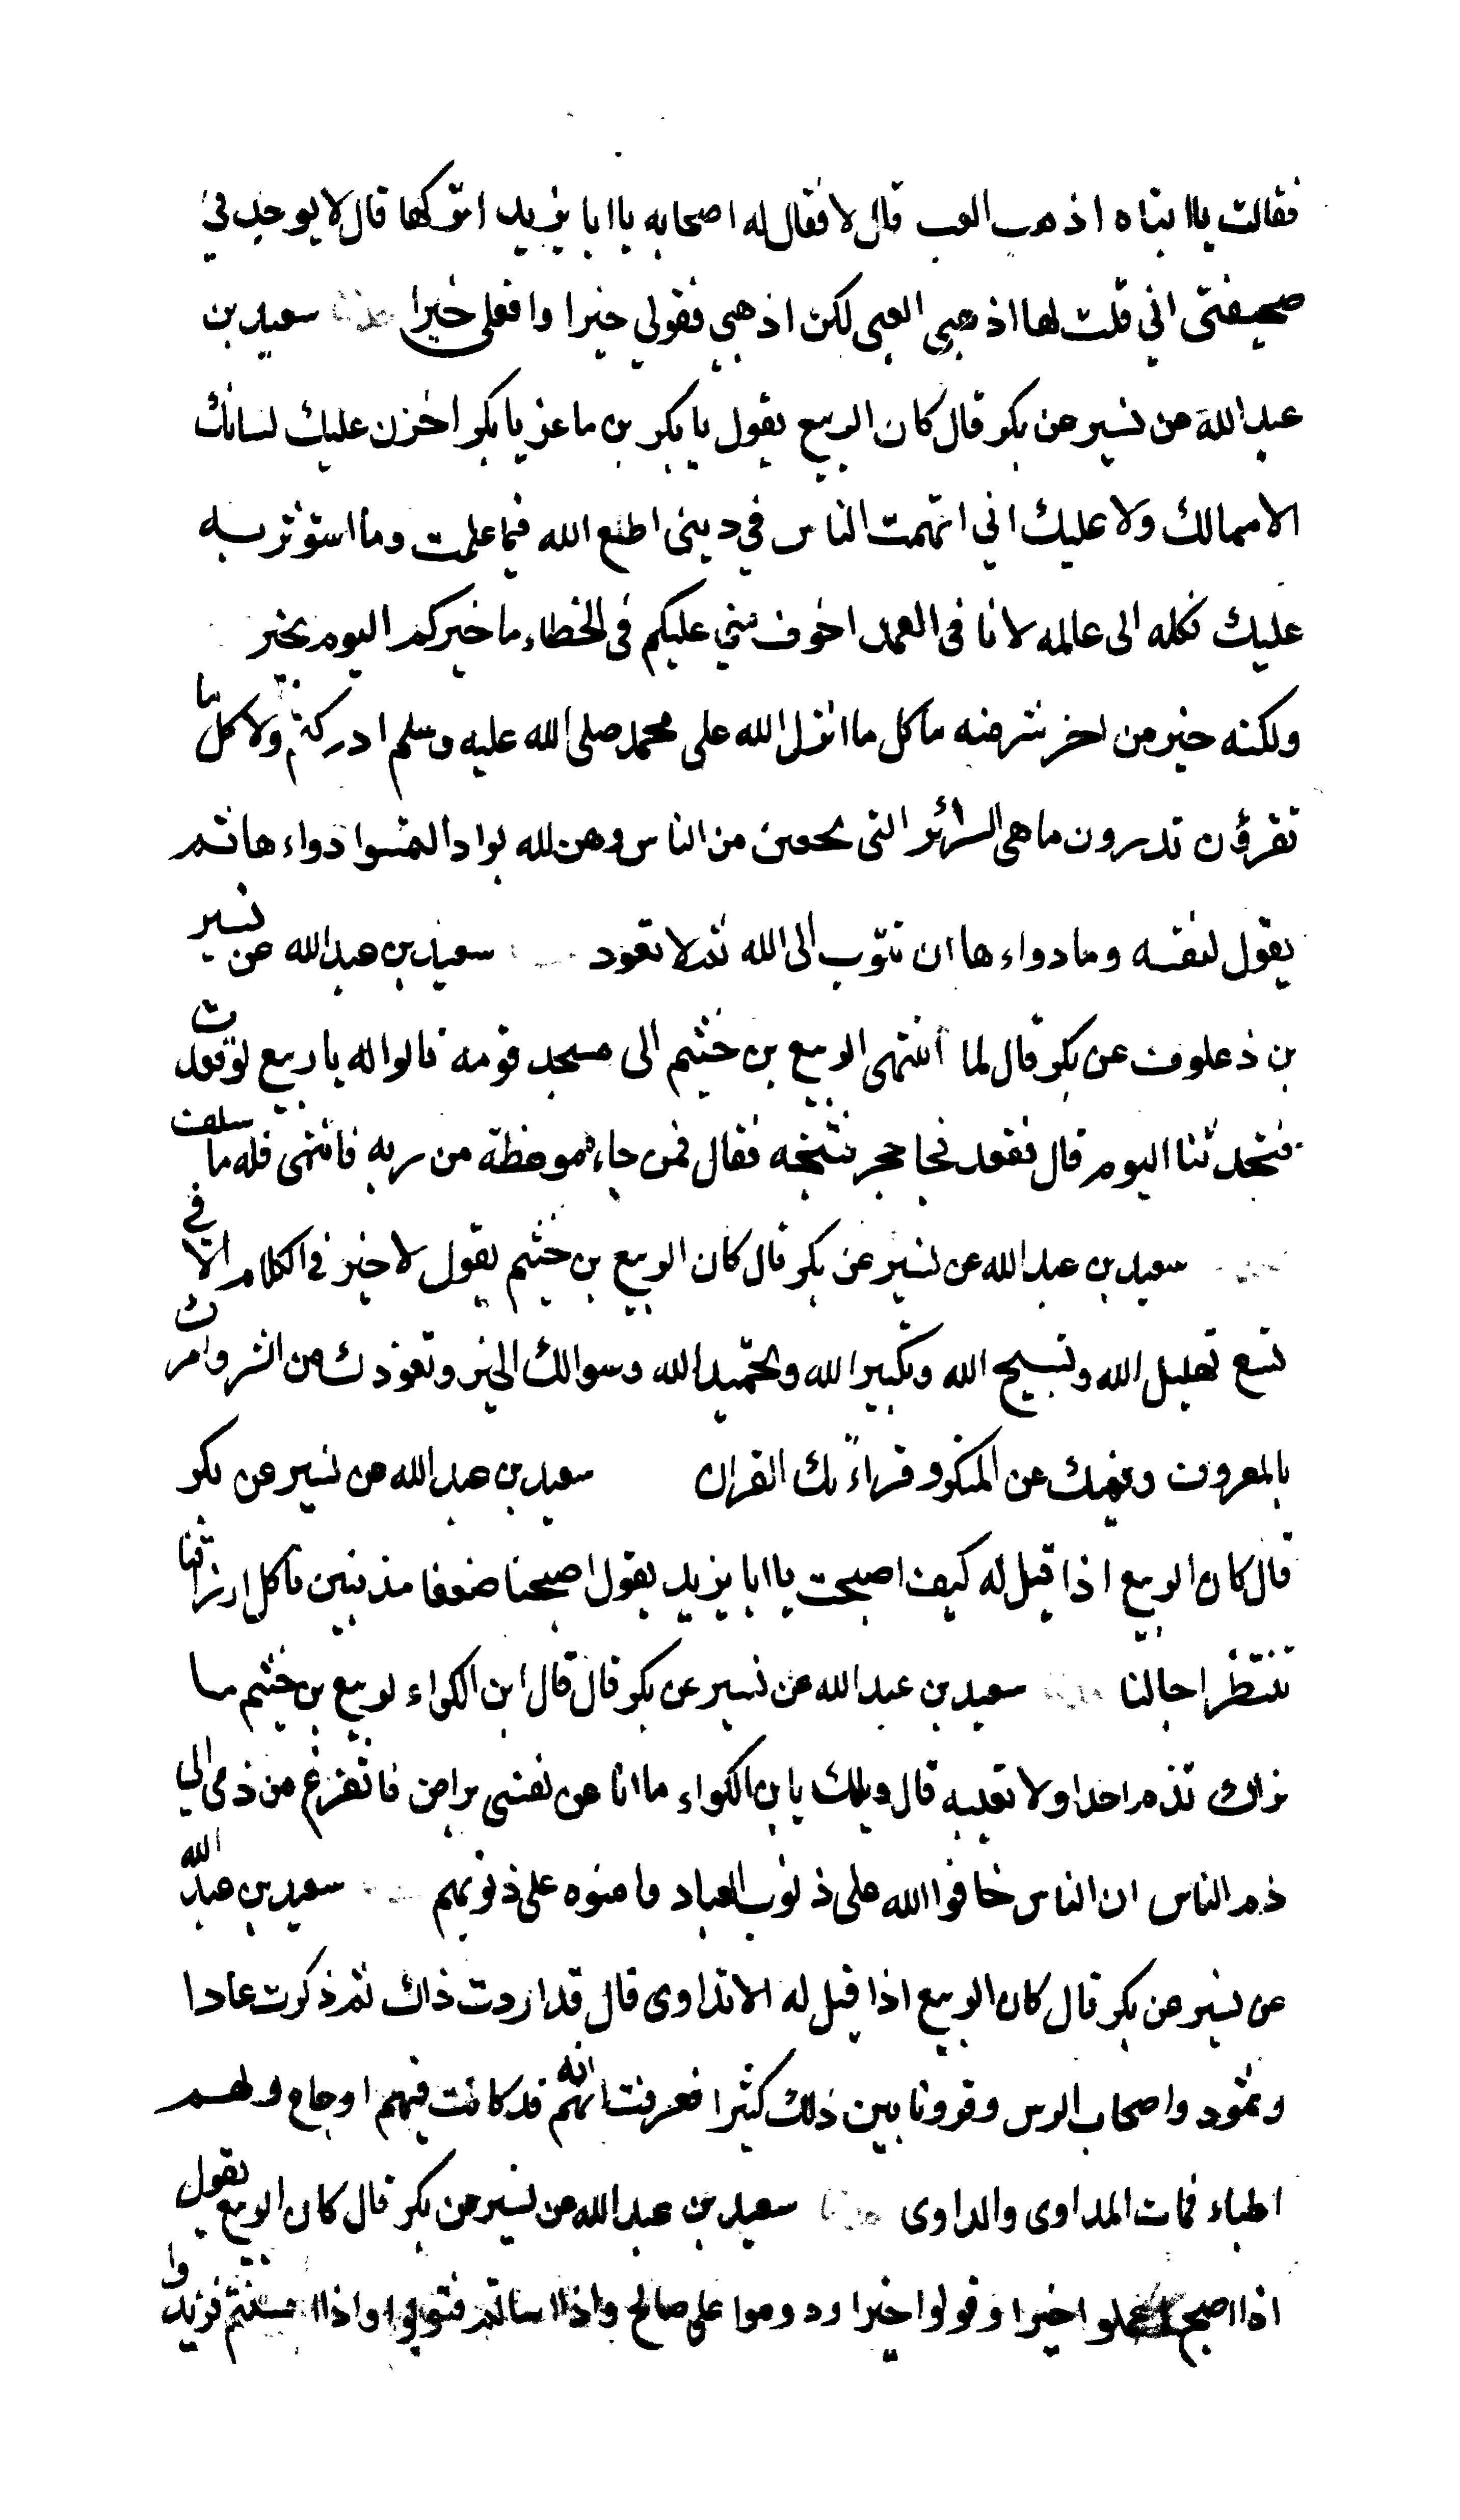 فقالت يا ابتاه اذهب العب قال لا فقال له اصحابه يا ابا يزيد اتركها قال لا يوجد في
صحيفتي اني قلت لها اذهبي العبي لكن اذهبي فقولي خيرا وافعلي خيرا سعيد بن
عبد الله عن نسير عن بكر قال كان الربيع يقول يا بكر بن ماعز يا بكر اخزن عليك لسانك
الا مما لك ولا عليك اني اتهمت الناس في ديني اطع الله فيما علمت وما استوثر به
عليك فكله الى عالمه لانا في العمد اخوف مني عليكم في الخطاء ما خيركم اليوم بخير
ولكنه خير من اخر شر منه ما كل ما انزل الله على محمد صلى الله عليه وسلم ادركتم ولا كل ما
تقرؤن تدرون ما هي السرائر التي يخفين من الناس وهن لله بواد التمسوا دواءها ثم
يقول لنفسه وما دواءها ان تتوب الى الله ثم لا تعود سعيد بن عبد الله عن نسير
بن ذعلوف عن بكر قال لما انتهى الربيع بن خثيم الى مسجد قومه قالوا له يا ربيع لو قعدت
فتحدثنا اليوم قال فقعد فجا حجر فشجه فقال فمن جاءه موعظة من ربه فانتهى فله ما سلف
سعيد بن عبد الله عن نسير عن بكر قال كان الربيع بن خثيم يقول لا خير في الكلام الا في
تسع تهليل الله وتسبيح الله وتكبير الله وتحميد الله وسوالك الخير وتعوذك من الشر وامرك
بالمعروف ونهيك عن المنكر وقراءتك القران سعيد بن عبد الله عن نسير عن بكر
قال كان الربيع اذا قيل له كيف اصبحت يا ابا يزيد يقول اصبحنا ضعفا مذنبين ناكل ارزاقنا
ننتظر اجالنا سعيد بن عبد الله عن نسير عن بكر قال قال ابن الكواء لربيع بن خثيم ما
نراك تذم احدا ولا تعيبه قال ويلك يا بن الكواء ما انا عن نفسي براض فاتفرغ من ذمي الي
ذم الناس ان الناس خافوا الله على ذنوب العباد وامنوه على ذنوبهم سعيد بن عبد الله
عن نسير عن بكر قال كان الربيع اذا قيل له الا تداوى قال قد اردت ذاك ثم ذكرت عادا
وثمود واصحاب الرس وقرونا بين ذلك كثيرا فعرفت انه قد كانت فيهم اوجاع ولهم
اطباء فمات المداوى والداوى سعيد بن عبد الله عن نسير عن بكر قال كان الربيع يقول
اذا اصبح اعملوا خيرا وقولوا خيرا ودوموا على صالح واذا اساتم فتوبوا واذا احسنتم فزيدوا